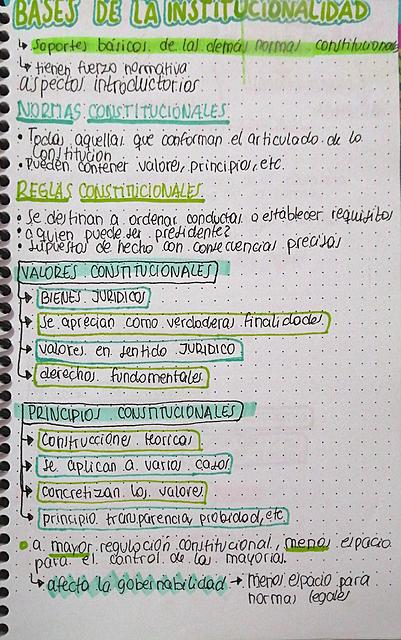 BASES DE LA INSTITUCIONALIDAD
↳ soportes básicos de las demás normas constitucionales
↳ tienen fuerza normativa
aspectos introductorios
NORMAS CONSTITUCIONALES
• Todas aquellas que conforman el articulado de la
Constitución
• Pueden contener valores, principios, etc.
REGLAS CONSTITUCIONALES
• se destinan a ordenar conductas o establecer requisitos
• a quien puede ser presidente?
• supuestos de hecho con consecuencias precisas
VALORES CONSTITUCIONALES
→ BIENES JURIDICOS
→ se aprecian como verdaderas finalidades
→ valores en sentido JURIDICO
→ derechos fundamentales
PRINCIPIOS CONSTITUCIONALES
→ construcciones teoricas
→ se aplican a varios casos
→ concretizan los valores
→ principio transparencia, probidad, etc
• a mayor regulación constitucional, menos espacio
para el control de las mayorias.
↳ afecta la gobernabilidad → menos espacio para
normas legales